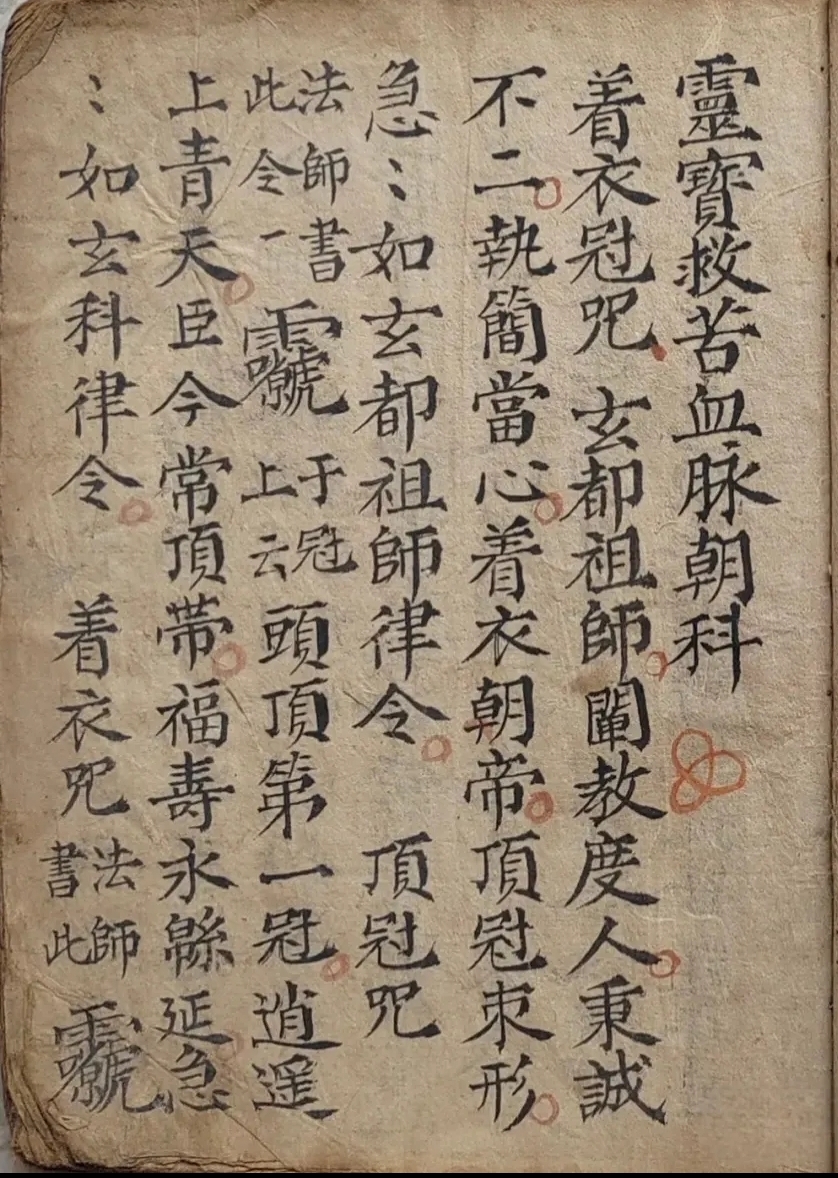 靈寳救苦血脉朝科
着衣冠咒 玄都祖師闡教度人秉誠
不二執簡當心着衣朝帝頂冠束形
急〻如玄都祖師律令 頂冠咒
法師書
此令一
于冠
上云
頭頂第一冠逍遥
上青天臣今常頂帶福壽永綿延急
〻如玄科律令 着衣咒
法師
書此